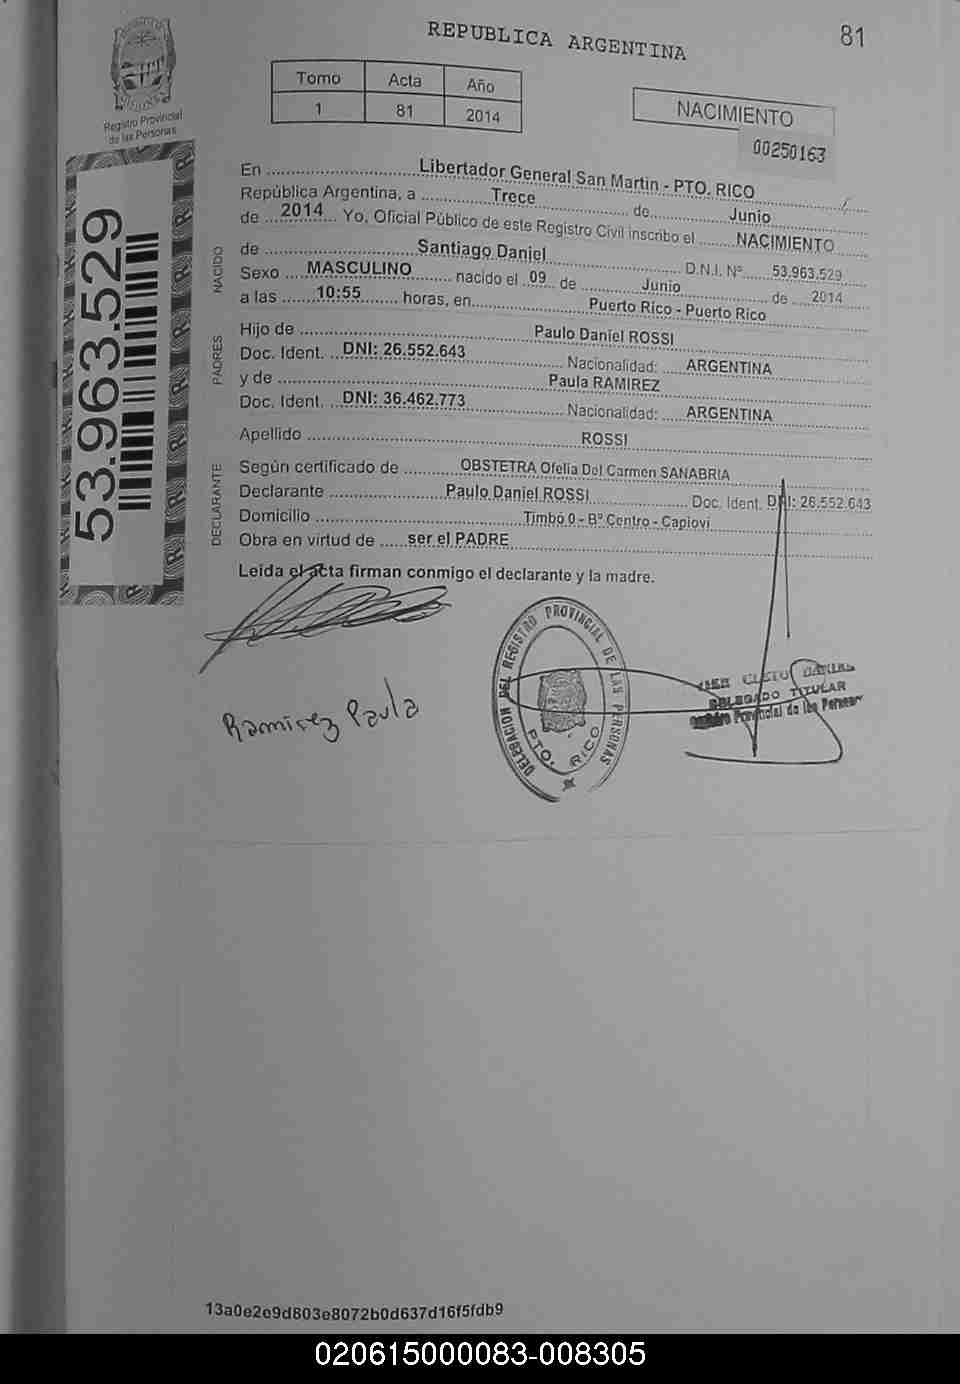 REPUBLICA ARGENTINA
81
Registro Provincial
de las Personas
Tomo Acta Año
1 81 2014
NACIMIENTO
00250163
53.963.529
En Libertador General San Martin - PTO. RICO
República Argentina, a Trece de Junio
de 2014 Yo, Oficial Público de este Registro Civil inscribo el NACIMIENTO
NACIDO
de Santiago Daniel D.N.I. Nº 53.963.529
Sexo MASCULINO nacido el 09 de Junio de 2014
a las 10:55 horas, en Puerto Rico - Puerto Rico
PADRES
Hijo de Paulo Daniel ROSSI
Doc. Ident. DNI: 26.552.643 Nacionalidad: ARGENTINA
y de Paula RAMIREZ
Doc. Ident. DNI: 36.462.773 Nacionalidad: ARGENTINA
Apellido ROSSI
DECLARANTE
Según certificado de OBSTETRA Ofelia Del Carmen SANABRIA
Declarante Paulo Daniel ROSSI Doc. Ident. DNI: 26.552.643
Domicilio Timbó 0 - Bº Centro - Capioví
Obra en virtud de ser el PADRE
Leída el acta firman conmigo el declarante y la madre.
Ramirez Paula
DELEGACION DEL REGISTRO PROVINCIAL DE LAS PERSONAS
PTO. RICO
DELEGADO TITULAR
Provincial de las Personas
13a0e2e9d803e8072b0d637d16f5fdb9
020615000083-008305